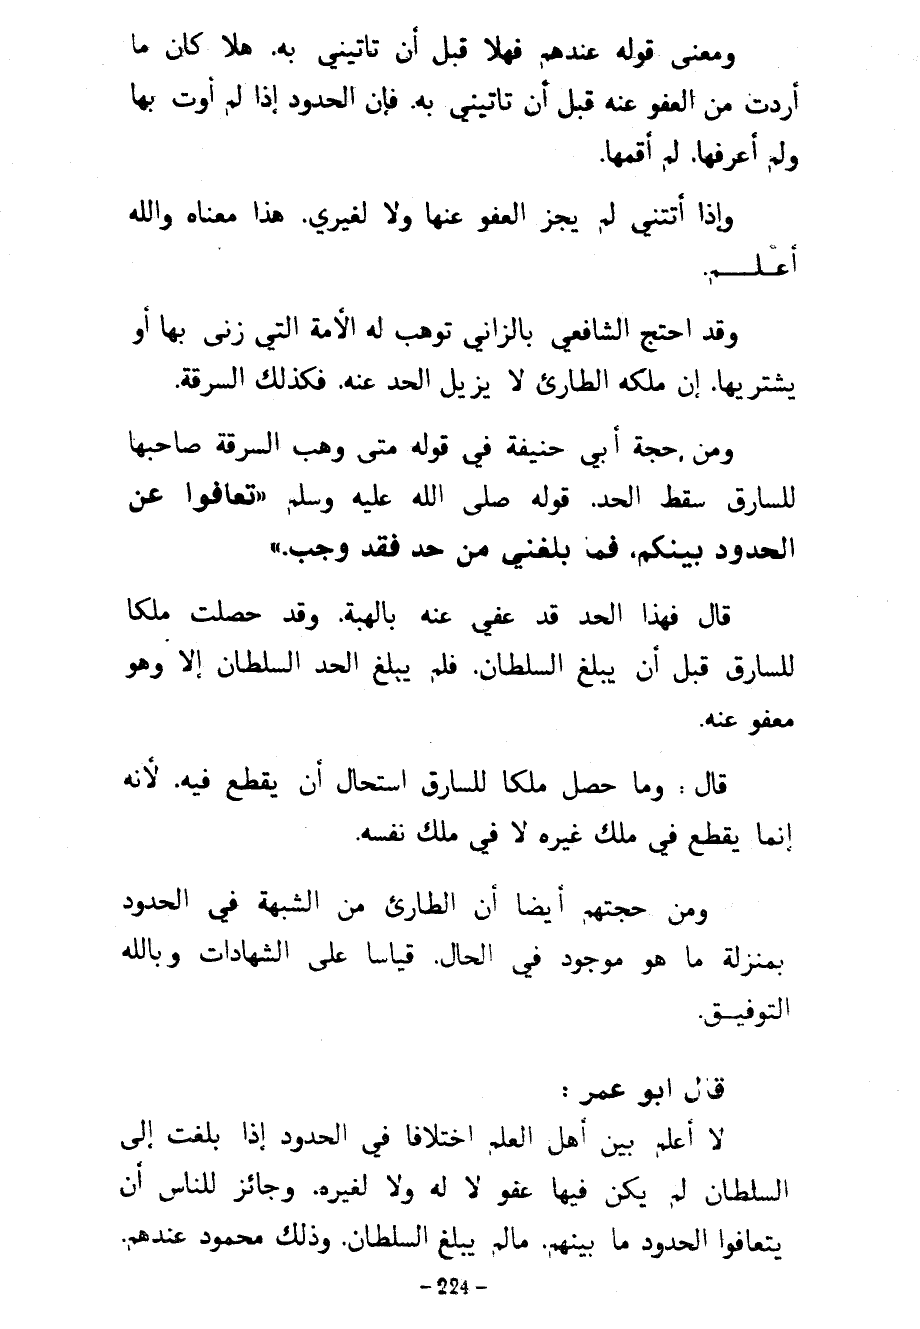 ومعنى قوله عندهم فهلا قبل أن تاتيني به. هلا كان ما
أردت من العفو عنه قبل أن تاتيني به. فإن الحدود إذا لم أوت بها
ولم أعرفها. لم أقمها.
وإذا أتتني لم يجز العفو عنها ولا لغيري. هذا معناه والله
أعلـــــم.
وقد احتج الشافعي بالزاني توهب له الأمة التي زنى بها أو
يشتريها. إن ملكه الطارئ لا يزيل الحد عنه. فكذلك السرقة.
ومن حجة أبي حنيفة في قوله متى وهب السرقة صاحبها
للسارق سقط الحد. قوله صلى الله عليه وسلم «تعافوا عن
الحدود بينكم، فما بلغني من حد فقد وجب.»
قال فهذا الحد قد عفي عنه بالهبة. وقد حصلت ملكا
للسارق قبل أن يبلغ السلطان. فلم يبلغ الحد السلطان إلا وهو
معفو عنه.
قال : وما حصل ملكا للسارق استحال أن يقطع فيه. لأنه
إنما يقطع في ملك غيره لا في ملك نفسه.
ومن حجتهم أيضا أن الطارئ من الشبهة في الحدود
بمنزلة ما هو موجود في الحال. قياسا على الشهادات وبالله
التوفيــق.
قال ابو عمر :
لا أعلم بين أهل العلم اختلافا في الحدود إذا بلغت إلى
السلطان لم يكن فيها عفو لا له ولا لغيره. وجائز للناس أن
يتعافوا الحدود ما بينهم. مالم يبلغ السلطان. وذلك محمود عندهم.
- 224 -